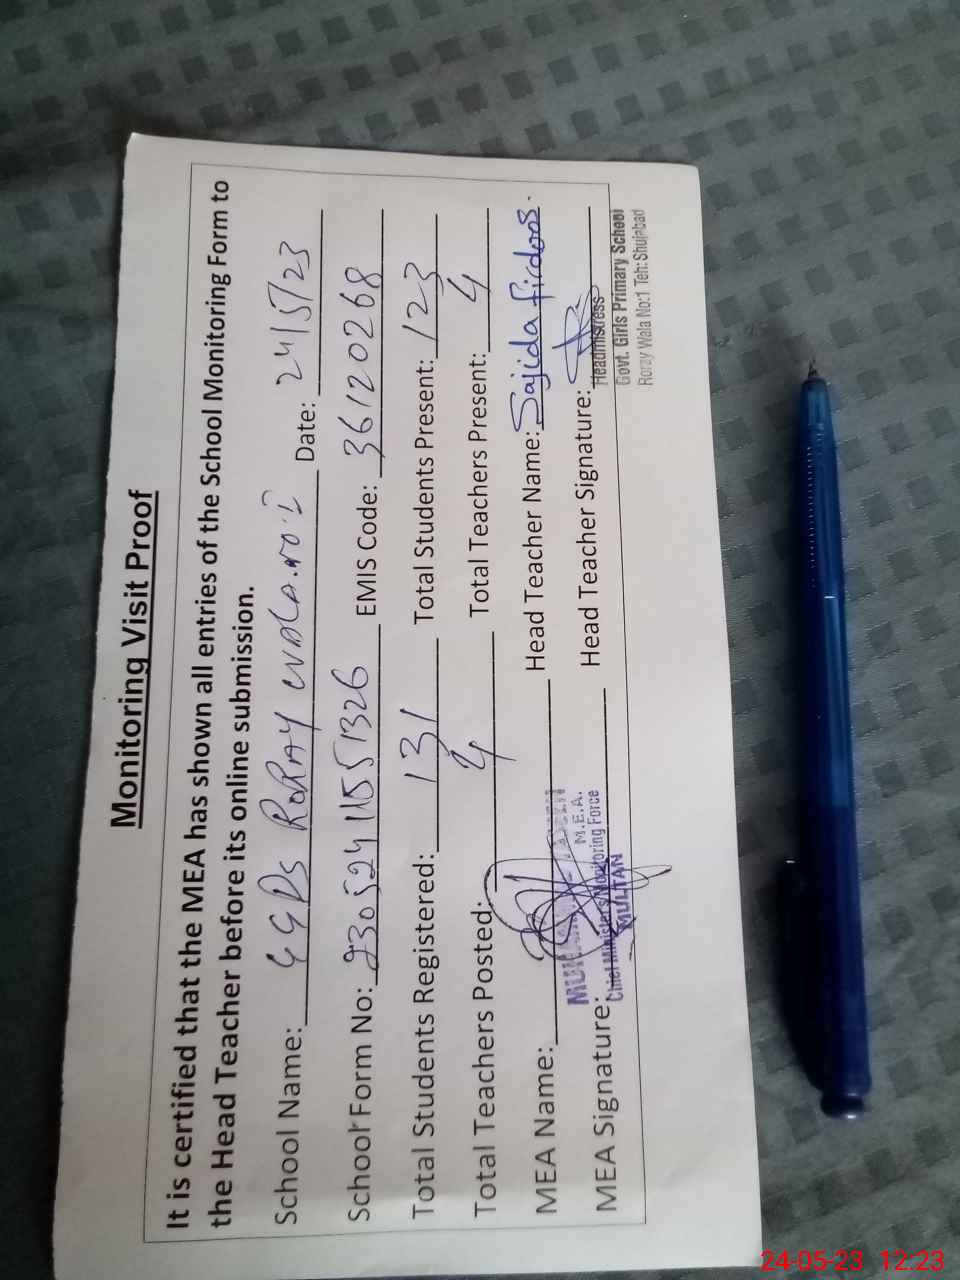 Monitoring Visit Proof
It is certified that the MEA has shown all entries of the School Monitoring Form to
the Head Teacher before its online submission.
School Name: GGPS RORAY WALA.NO.1 Date: 24/5/23
School Form No: 230524115551326 EMIS Code: 36120268
Total Students Registered: 131 Total Students Present: 123
Total Teachers Posted: 4 Total Teachers Present: 4
MEA Name: Head Teacher Name: Sajida Firdoos.
M.E.A.
MEA Signature: Head Teacher Signature:
Chief Minister's Monitoring Force
MULTAN
Headmistress
Govt. Girls Primary School
Roray Wala No:1 Teh: Shujabad
24-05-23 12:23